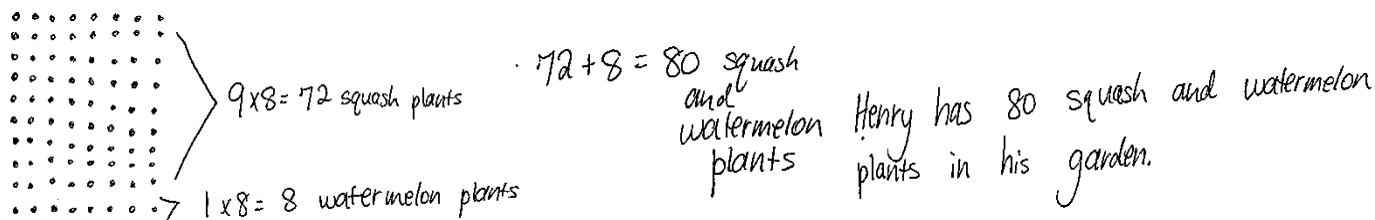 9x8=72 squash plants
1x8= 8 watermelon plants
72+8=80 squash
and
watermelon
plants
Henry has 80 squash and watermelon
plants in his garden.